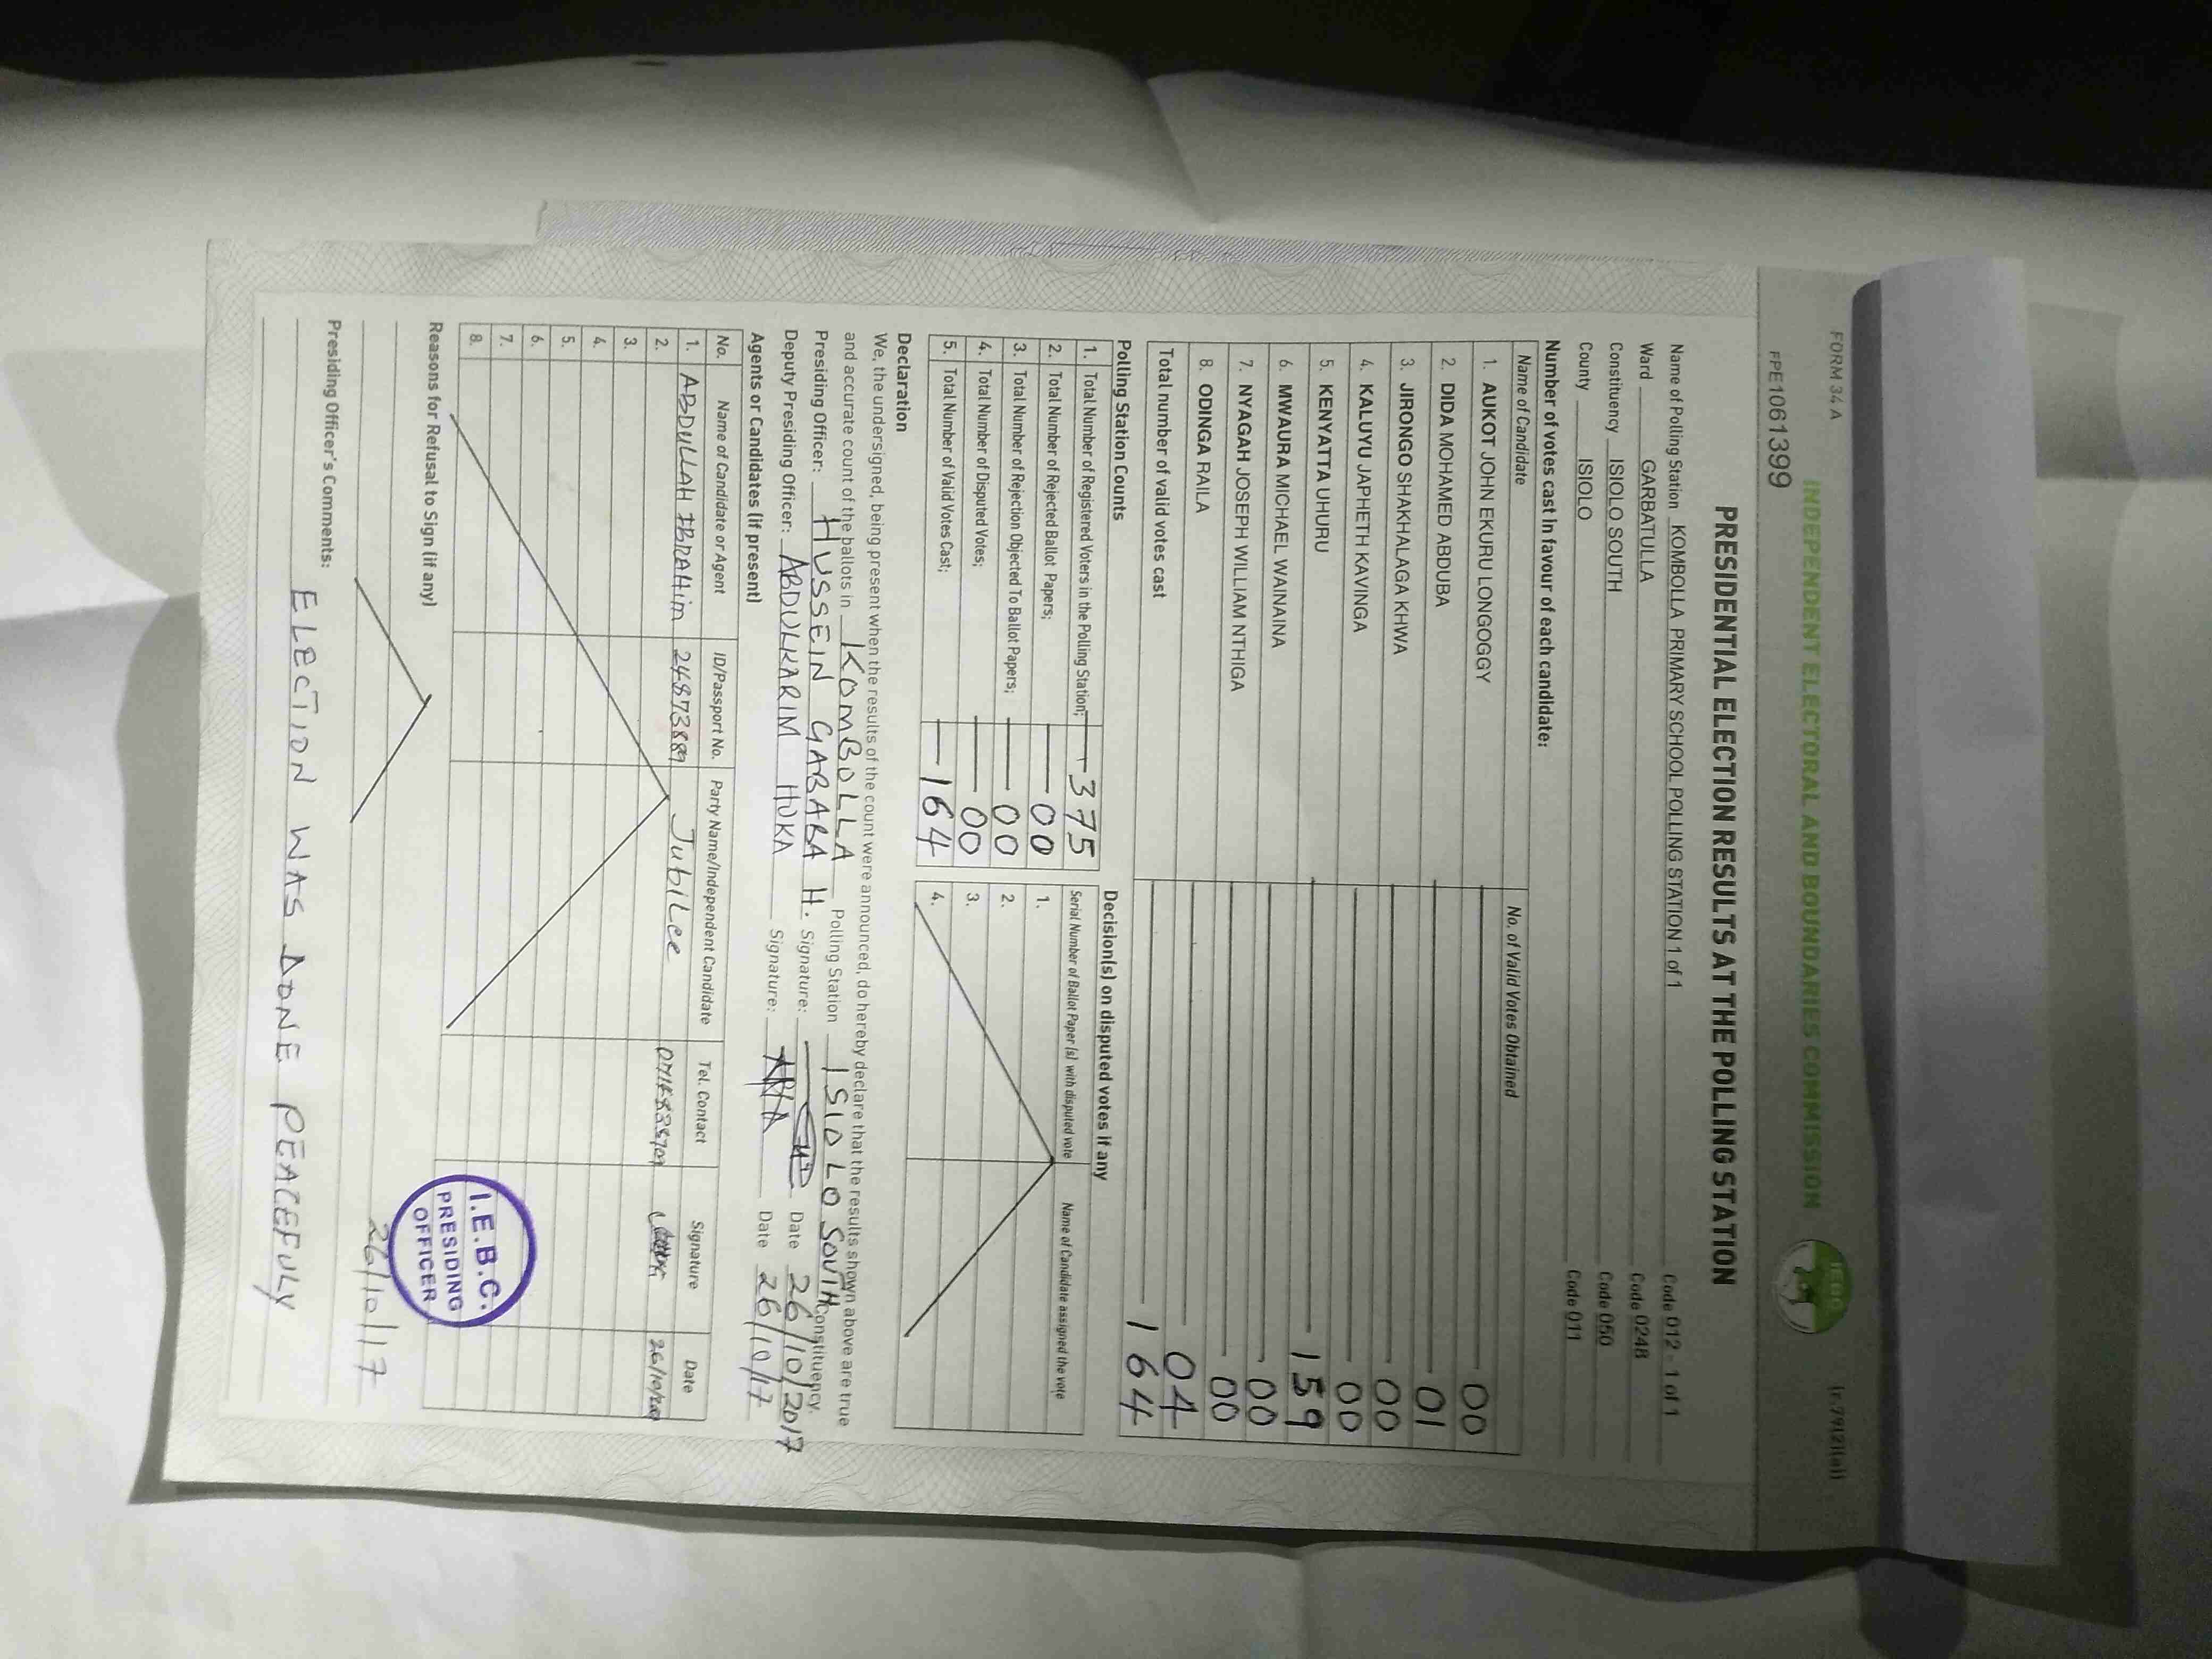 FORM 34 A
INDEPENDENT ELECTORAL AND BOUNDARIES COMMISSION
IEBC
(r.79(2)(a))
FPE1061399
PRESIDENTIAL ELECTION RESULTS AT THE POLLING STATION
Name of Polling Station KOMBOLLA PRIMARY SCHOOL POLLING STATION 1 of 1 Code 012 - 1 of 1
Ward GARBATULLA Code 0248
Constituency ISIOLO SOUTH Code 050
County ISIOLO Code 011
Number of votes cast in favour of each candidate:
Name of Candidate No. of Valid Votes Obtained
1. AUKOT JOHN EKURU LONGOGGY 00
2. DIDA MOHAMED ABDUBA 01
3. JIRONGO SHAKHALAGA KHWA 00
4. KALUYU JAPHETH KAVINGA 00
5. KENYATTA UHURU 159
6. MWAURA MICHAEL WAINAINA 00
7. NYAGAH JOSEPH WILLIAM NTHIGA 00
8. ODINGA RAILA 04
Total number of valid votes cast 164
Polling Station Counts
1. Total Number of Registered Voters in the Polling Station; 375
2. Total Number of Rejected Ballot Papers; 00
3. Total Number of Rejection Objected To Ballot Papers; 00
4. Total Number of Disputed Votes; 00
5. Total Number of Valid Votes Cast; 164
Decision(s) on disputed votes if any
Serial Number of Ballot Paper (s) with disputed vote Name of Candidate assigned the vote
1.
2.
3.
4.
Declaration
We, the undersigned, being present when the results of the count were announced, do hereby declare that the results shown above are true
and accurate count of the ballots in KOMBOLLA Polling Station ISIOLO SOUTH Constituency.
Presiding Officer: HUSSEIN GABABA H. Signature: Date 26/10/2017
Deputy Presiding Officer: ABDULKARIM HUKA Signature: Date 26/10/17
Agents or Candidates (if present)
No. Name of Candidate or Agent ID/Passport No. Party Name/Independent Candidate Tel. Contact Signature Date
1. ABDULLAH IBRAHIM Jubilee
2.
3.
4.
5.
6.
7.
8.
I.E.B.C.
PRESIDING
OFFICER
Reasons for Refusal to Sign (if any)
26/10/17
Presiding Officer's Comments:
ELECTION WAS DONE PEACEFULY